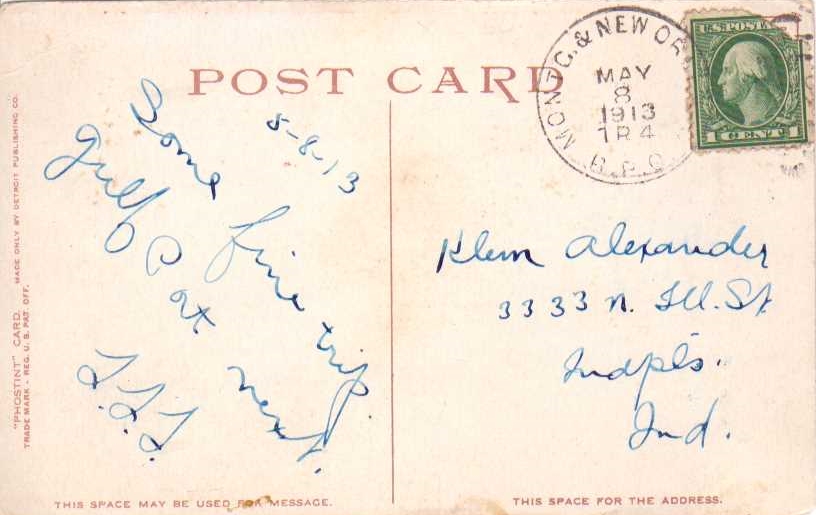 POST CARD
MONTG. & NEW OR
MAY
8
1913
TR 4
R.P.O.
U.S. POSTA
1 CENT 1
5-8-13
Some fine trip.
Gulf P at next.
Klem Alexander
3333 N. Ill. St
Indpls.
Ind.
"PHOSTINT" CARD. MADE ONLY BY DETROIT PUBLISHING CO.
TRADE MARK - REG. U. S. PAT. OFF.
THIS SPACE MAY BE USED FOR MESSAGE.
THIS SPACE FOR THE ADDRESS.